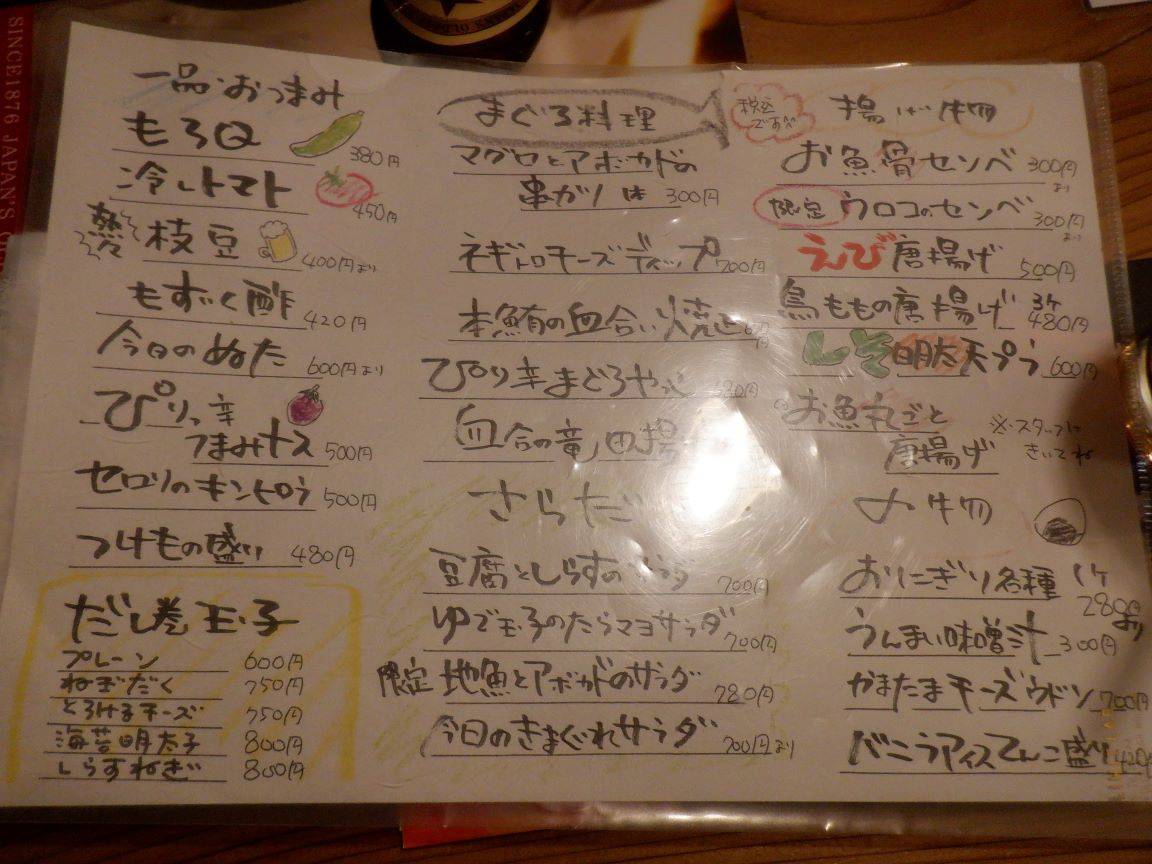 SINCE 1876 JAPAN'S
一品・おつまみ
もろQ 380円
冷しトマト 450円
熱々 枝豆 400円より
もずく酢 420円
今日のぬた 600円より
ぴりっ辛
つまみナス 500円
セロリのキンピラ 500円
つけもの盛り 480円
だし巻玉子
プレーン 600円
ねぎだく 750円
とろけるチーズ 750円
海苔明太子 800円
しらすねぎ 800円
まぐろ料理
マグロとアボカドの
串ガツ 1本 300円
ネギトロチーズディップ 700円
本鮪の血合い焼き
ぴり辛まぐろやっこ
血合の竜田揚
さらだ
豆腐としらすのサラダ 700円
ゆで玉子のたらマヨサラダ 700円
限定 地魚とアボカドのサラダ 780円
今日のきまぐれサラダ 700円より
税込です
揚げ物
お魚骨センベ 300円より
限定 ウロコのセンベ 300円より
えび唐揚げ 500円
鳥ももの唐揚げ 3ケ 480円
しそ明太天プラ 600円
お魚丸ごと
唐揚げ ※スタッフに きいてね
〆物
おにぎり各種 1ケ 280円より
うんまい味噌汁 300円
かまたまチーズウドン 700円
バニラアイスてんこ盛り 420円